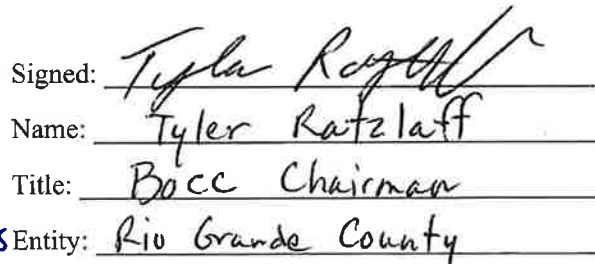 Signed: Tyler Ratzlaff
Name: Tyler Ratzlaff
Title: BOCC Chairman
s Entity: Rio Grande County